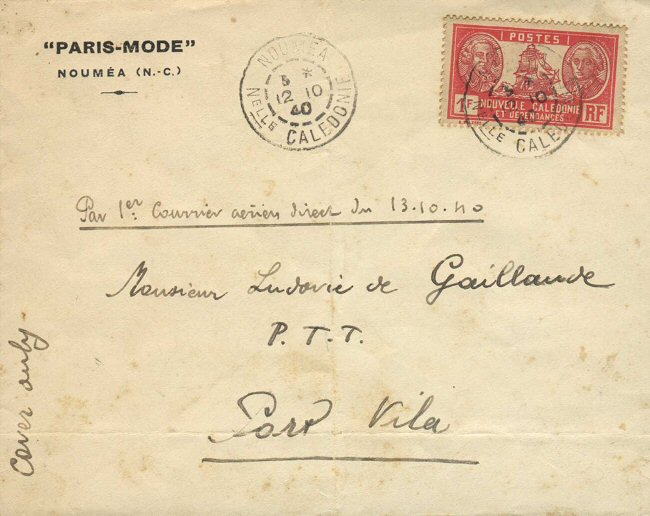 "PARIS-MODE"
NOUMÉA (N.-C.)
NOUMÉA
12 10
40
NELLE CALÉDONIE
POSTES
1F NOUVELLE CALÉDONIE RF
ET DÉPENDANCES
10
NELLE CALED
Par 1er Courrier aérien direct du 13.10.40
Monsieur Ludovic de Gaillande
P.T.T.
Port Vila
Cover only